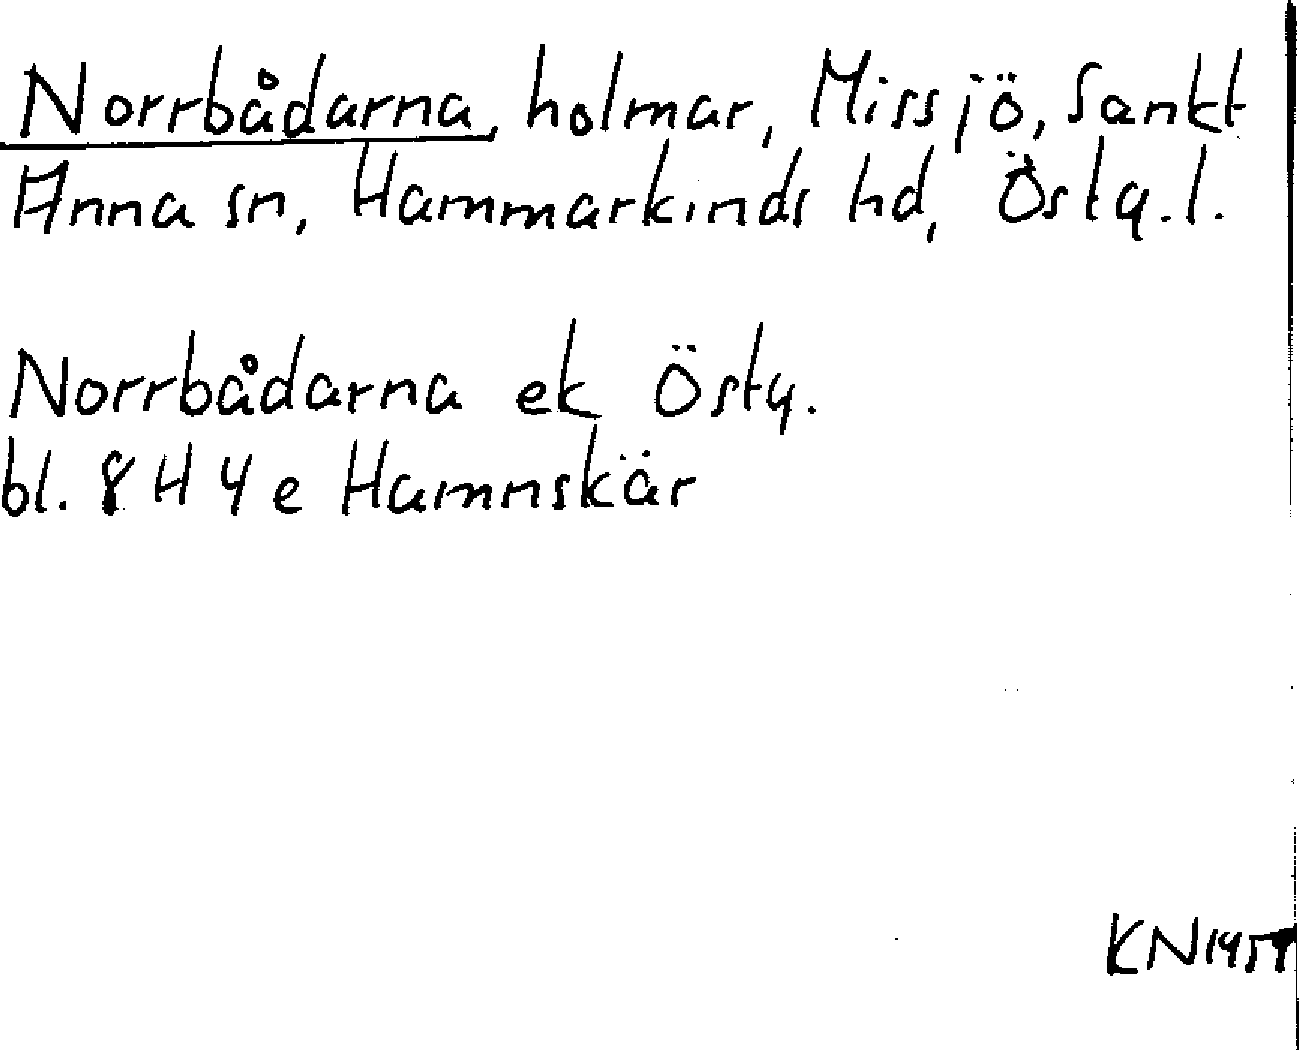 Norrbådarna, holmar, Missjö, Sankt
Anna sn, Hammarkinds hd, Östg.l.
Norrbådarna ek Östg.
bl. 8H 4e Hamnskär
KN